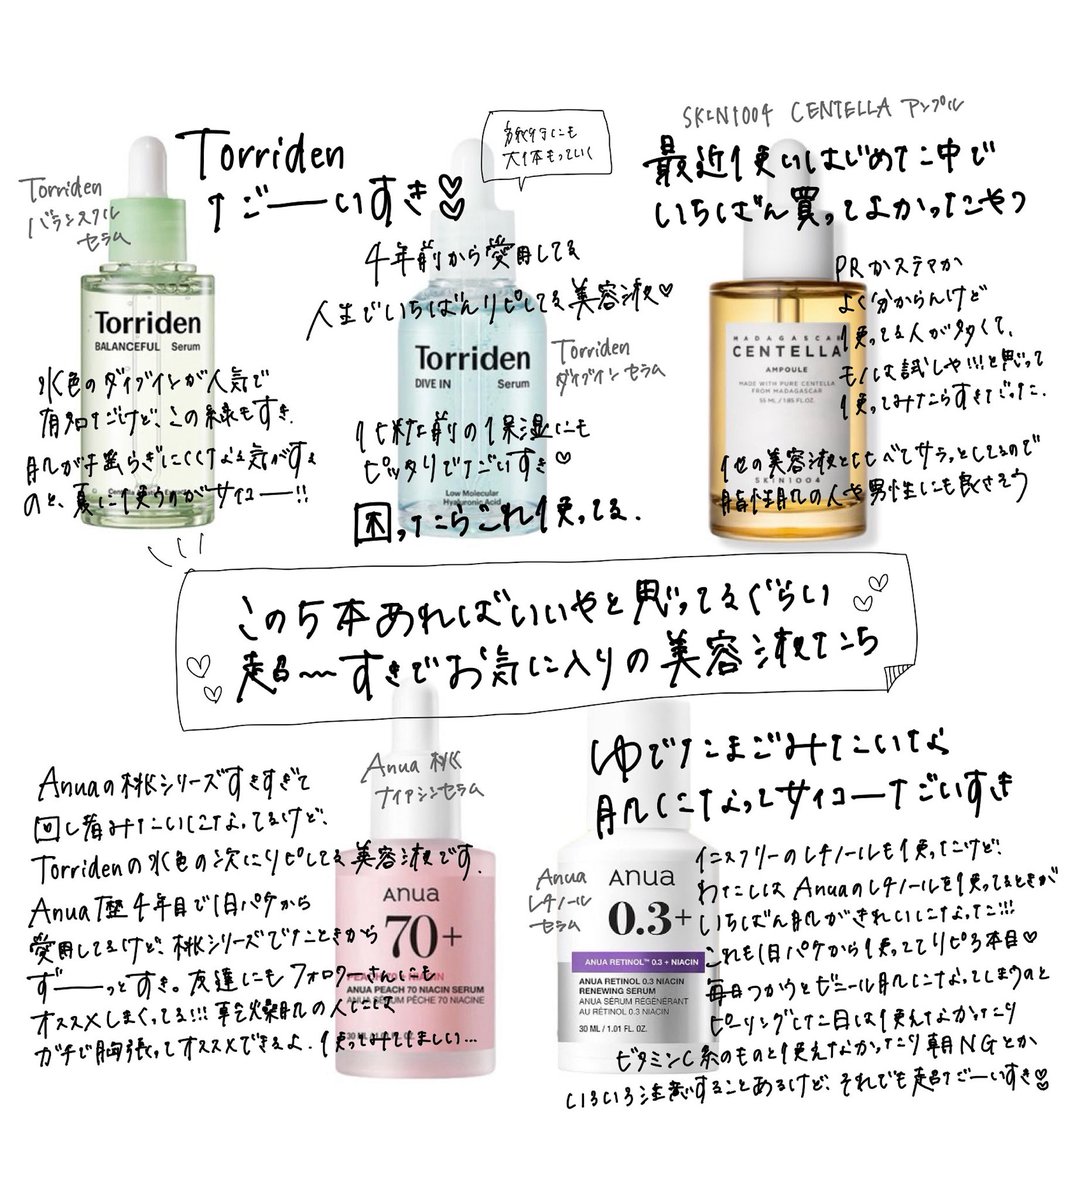 Torriden
すごーいすき
旅行にも
大体もっていく
SKIN1004 CENTELLA アンプル
最近使いはじめた中で
いちばん買ってよかったやつ
Torriden
バランスフル
セラム
Torriden
BALANCEFUL Serum
水色のダイブインが人気で
有名だけど、この緑もすき.
肌が揺らぎにくくなる気がする
のと、夏に使うのがサイコー!!
4年前から愛用してる
人生でいちばんリピしてる美容液
Torriden
DIVE IN Serum
Torriden
ダイブインセラム
化粧前の保湿にも
ピッタリですごいすき
Low Molecular
Hyaluronic Acid
困ったらこれ使ってる.
PRかステマか
よく分からんけど
使ってる人が多くて、
モノは試しや!!!と思って
使ってみたらすきだった.
MADAGASCAR
CENTELLA
AMPOULE
MADE WITH PURE CENTELLA
FROM MADAGASCAR
55 ML / 1.85 FL.OZ.
SKIN1004
他の美容液とくらべてサラッとしてるので
脂性肌の人や男性にも良さそう
この5本あればいいやと思ってるぐらい
超〜すきでお気に入りの美容液たち
Anuaの桃シリーズすきすぎて
回し者みたいになってるけど、
Torridenの水色の次にリピしてる美容液です.
Anua歴4年目で1日パケから
愛用してるけど、桃シリーズでたときから
ずーーっとすき。友達にもフォロワーさんにも
オススメしまくってる!!! 乾燥肌の人には
ガチで胸張ってオススメできるよ.使ってみてほしい...
Anua 桃
ナイアシンセラム
Anua
70+
ANUA PEACH 70 NIACIN SERUM
ANUA SÉRUM PÊCHE 70 NIACINE
ゆでたまごみたいな
肌になってサイコーすごいすき
Anua
レチノール
セラム
Anua
0.3+
ANUA RETINOL™ 0.3 + NIACIN
ANUA RETINOL 0.3 NIACIN
RENEWING SERUM
ANUA SÉRUM RÉGÉNÉRANT
AU RÉTINOL 0.3 NIACIN
30 ML / 1.01 FL. OZ.
イニスフリーのレチノールも使ったけど、
わたしは Anuaのレチノールを使ってるときが
いちばん肌がきれいになった!!!
これも旧パケから使っててリピ3本目
毎日つかうとビニール肌になってしまうのと
ピーリングした日は使えなかったり
ビタミンC系のものと使えなかったり朝NGとか
いろいろ注意することあるけど、それでも超すごーいすき